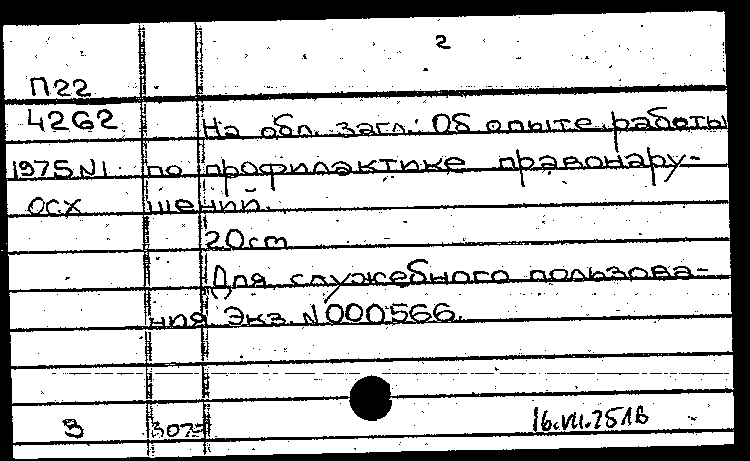 2
П22
4262 На обл. загл.: Об опыте работы
1975 N1 по профилактике правонару-
ОСХ шений.
20см
Для служебного пользова-
ния. Экз. N000566.
3 307=
16.VII.75